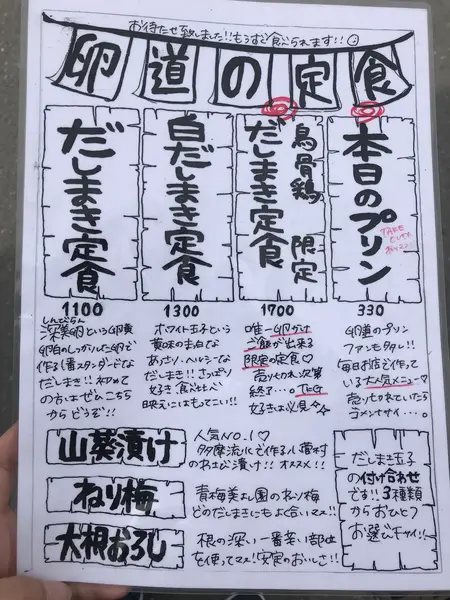 お待たせ致しました!!もうすぐ食べられます!!
卵道の定食
だしまき定食
1100
しんびらん
深美卵という卵黄
卵白のしっかりした卵で
作る1番スタンダードな
だしまき!!初めて
の方はぜひこちら
からどうぞ!!
白だしまき定食
1300
ホワイト玉子という
黄味の末白な
あっさり、ヘルシーな
だしまき!!さっぱり
好き、食べ比べ
映えにはもってこい!!
烏骨鶏 限定
だしまき定食
1700
唯一卵かけ
ご飯が出来る
限定の定食♡
売り切れ次第
終了...。TKG
好きは必見☆☆
本日のプリン
TAKE
OUTも
あります!
330
卵道のプリン
ファンも多数!!
毎日お店で作って
いる大人気メニュー♡
売り切れていたら
ゴメンナサイ...。
山葵漬け
人気NO.1♡
多摩流水で作る小菅村
のわさび漬け!!オススメ!!
ねり梅
青梅美よし園のねり梅
どのだしまきにもよく合いマス!!
大根おろし
根の深い一番辛い部位
を使ってマス!安定のおいしさ!!
だしまき玉子
の付け合わせ
です!!3種類
からおひとつ
お選び下サイ!!